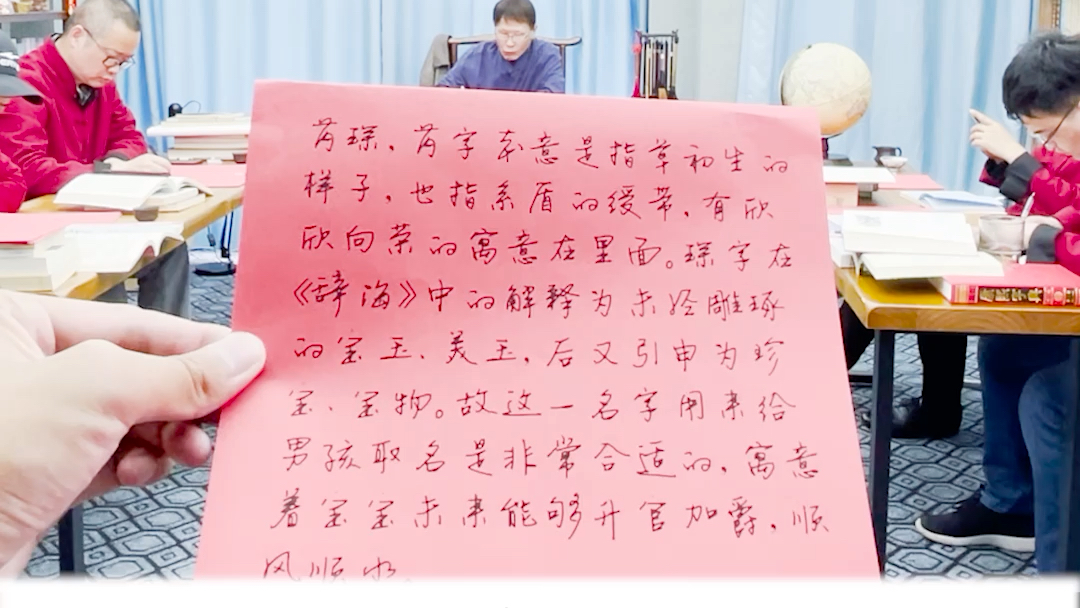 芮琛，芮字本意是指草初生的
样子，也指系盾的绶带，有欣
欣向荣的寓意在里面。琛字在
《辞海》中的解释为未经雕琢
的宝玉、美玉，后又引申为珍
宝、宝物。故这一名字用来给
男孩取名是非常合适的，寓意
着宝宝未来能够升官加爵，顺
风顺水